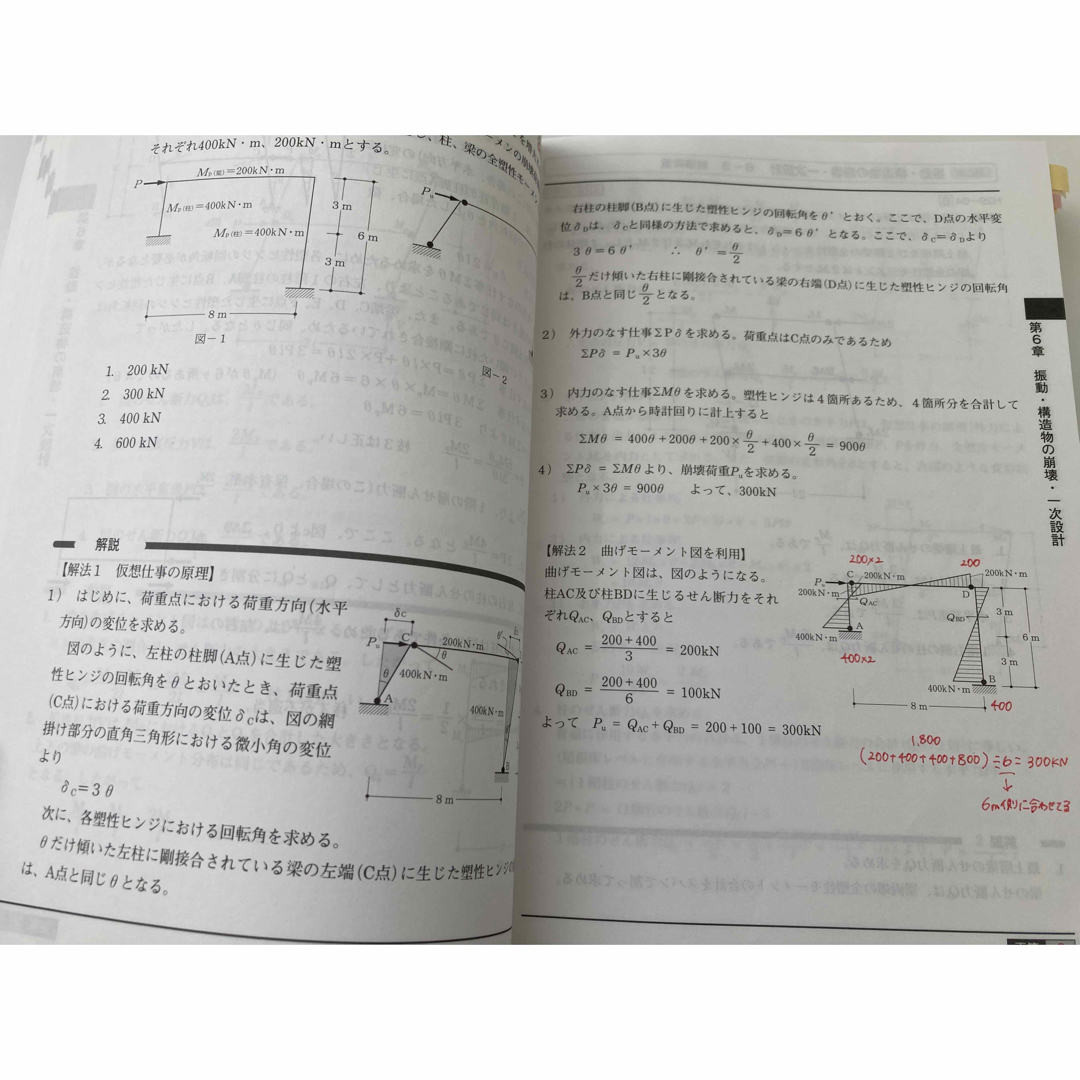 それぞれ400kN・m、200kN・mとする。
P
Mp(梁)=200kN・m
Mp(柱)=400kN・m
Mp(柱)=400kN・m
3 m
6 m
3 m
8 m
図-1
Pu
図-2
1. 200 kN
2. 300 kN
3. 400 kN
4. 600 kN
解説
【解法1 仮想仕事の原理】
1) はじめに、荷重点における荷重方向(水平
方向)の変位を求める。
図のように、左柱の柱脚(A点)に生じた塑
性ヒンジの回転角をθとおいたとき、荷重点
(C点)における荷重方向の変位δcは、図の網
掛け部分の直角三角形における微小角の変位
より
δc=3θ
次に、各塑性ヒンジにおける回転角を求める。
θだけ傾いた左柱に剛接合されている梁の左端(C点)に生じた塑性ヒンジの
は、A点と同じθとなる。
δc
Pu
C
200kN・m
θ
θ
400kN・m
A
400kN・m
B
8 m
右柱の柱脚(B点)に生じた塑性ヒンジの回転角をθ'とおく。ここで、D点の水平変
位δDは、δcと同様の方法で求めると、δD=6θ'となる。ここで、δC=δDより
3θ=6θ' ∴ θ'=θ/2
θ/2だけ傾いた右柱に剛接合されている梁の右端(D点)に生じた塑性ヒンジの回転角
は、B点と同じθ/2となる。
2) 外力のなす仕事ΣPδを求める。荷重点はC点のみであるため
ΣPδ = Pu×3θ
3) 内力のなす仕事ΣMθを求める。塑性ヒンジは4箇所あるため、4箇所分を合計して
求める。A点から時計回りに計上すると
ΣMθ = 400θ+200θ+200×θ/2+400×θ/2 = 900θ
4) ΣPδ = ΣMθより、崩壊荷重Puを求める。
Pu×3θ = 900θ よって、300kN
【解法2 曲げモーメント図を利用】
曲げモーメント図は、図のようになる。
柱AC及び柱BDに生じるせん断力をそれ
ぞれQAC、QBDとすると
QAC = (200+400)/3 = 200kN
QBD = (200+400)/6 = 100kN
よって Pu = QAC+QBD = 200+100 = 300kN
200×2
200
Pu
C
200kN・m
200kN・m
200kN・m
QAC
D
QBD
3 m
6 m
3 m
400kN・m
A
400×2
400kN・m
B
400
8 m
1,800
(200+400+400+800)÷6=300KN
↓
6m側に合わせてる
第6章 振動・構造物の崩壊・一次設計